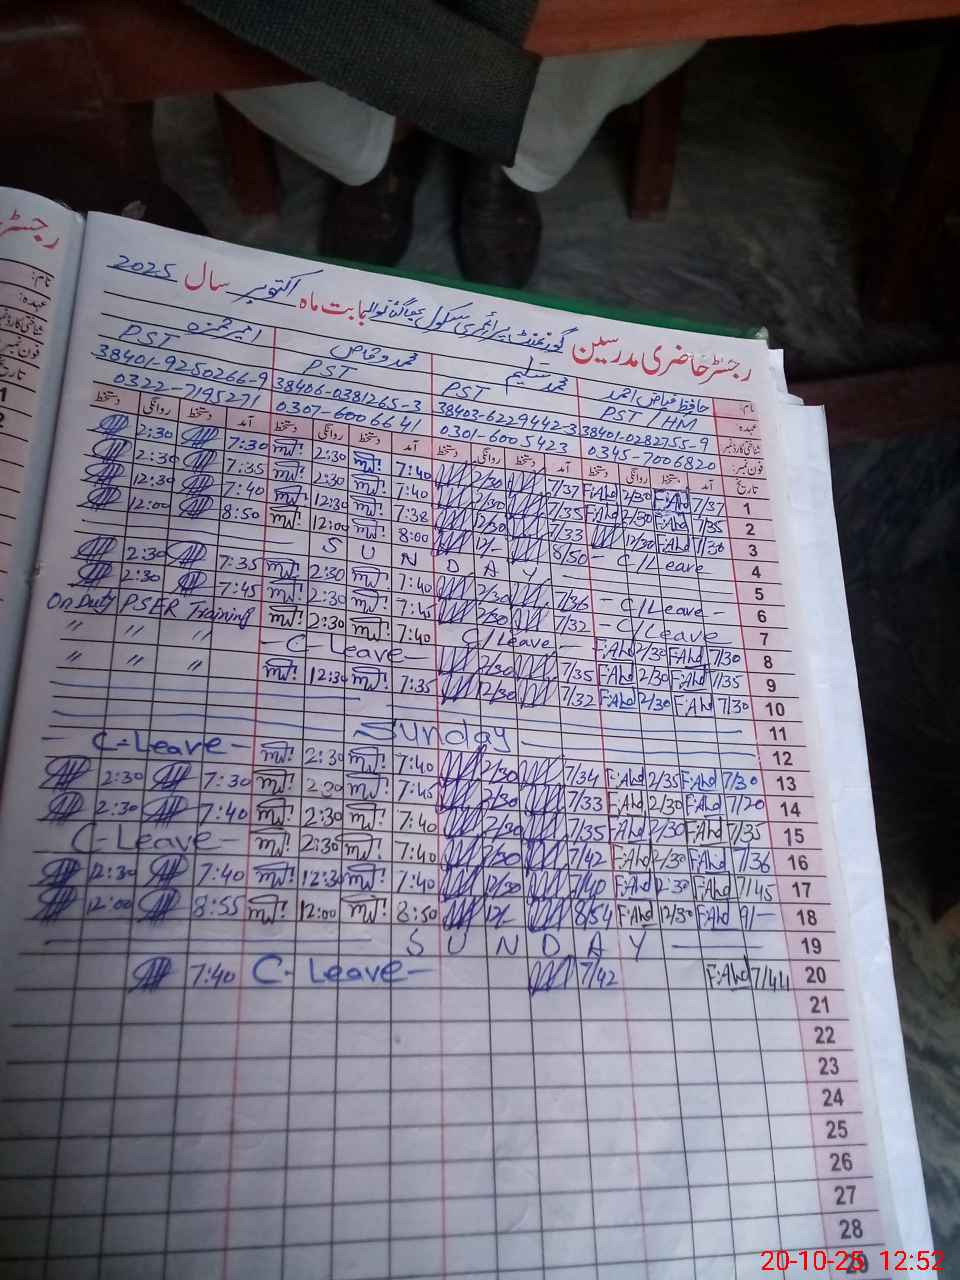 رجسٹر حاضری مدرسین گورنمنٹ پرائمری سکول بابت ماہ اکتوبر سال 2025
نام: حافظ فیاض احمد محمد سلیم محمد وقاص امیر حمزہ
عہدہ: PST / HM PST PST PST
شناختی کارڈ نمبر 38401-0282755-9 38403-6229442-3 38406-0381265-3 38401-9250266-9
فون نمبر: 0345-7006820 0301-6005423 0307-6006641 0322-7195271
تاریخ آمد دستخط روانگی دستخط آمد دستخط روانگی دستخط آمد دستخط روانگی دستخط آمد دستخط روانگی دستخط
1 7/37 F.Ahd 2/30 F.Ahd 7/37 2/30 7:40 2:30 7:30 2:30
2 7/35 F.Ahd 2/30 F.Ahd 7/35 2/30 7:40 2:30 7:35 2:30
3 7/30 F.Ahd 12/30 7/33 2/30 7:38 12:30 7:40 12:30
4 C/Leave 8/50 12/- 8:00 12:00 8:50 12:00
5 SUNDAY
6 - C/Leave - 7/36 2/30 7:40 2:30 7:35 2:30
7 - C/Leave 7/32 2/30 7:45 2:30 7:45 2:30
8 7/30 F.Ahd 2/30 F.Ahd C/Leave - 7:40 2:30 On Duty PSER Training
9 7/35 F.Ahd 2/30 F.Ahd 7/35 2/30 - C-Leave - " " "
10 7/30 F.Ahd 2/30 F.Ahd 7/32 12/30 7:35 12:30 " " "
11
12 Sunday
13 7/30 F.Ahd 2/35 F.Ahd 7/34 2/30 7:40 2:30 - C-Leave -
14 7/20 F.Ahd 2/30 F.Ahd 7/33 2/30 7:45 7:30 2:30
15 7/35 F.Ahd 2/30 F.Ahd 7/35 2/30 7:40 2:30 7:40 2:30
16 7/36 F.Ahd 2/30 F.Ahd 7/42 2/30 7:40 2:30 C-Leave -
17 7/45 F.Ahd 12:30 F.Ahd 7/40 12/30 7:40 12:30 7:40 12:30
18 9/- F.Ahd 12/30 F.Ahd 8/54 12/- 8:50 12:00 8:55 12:00
19 SUNDAY
20 7/44 F.Ahd 7/42 C-Leave - 7:40
21
22
23
24
25
26
27
28
29
20-10-25 12:52